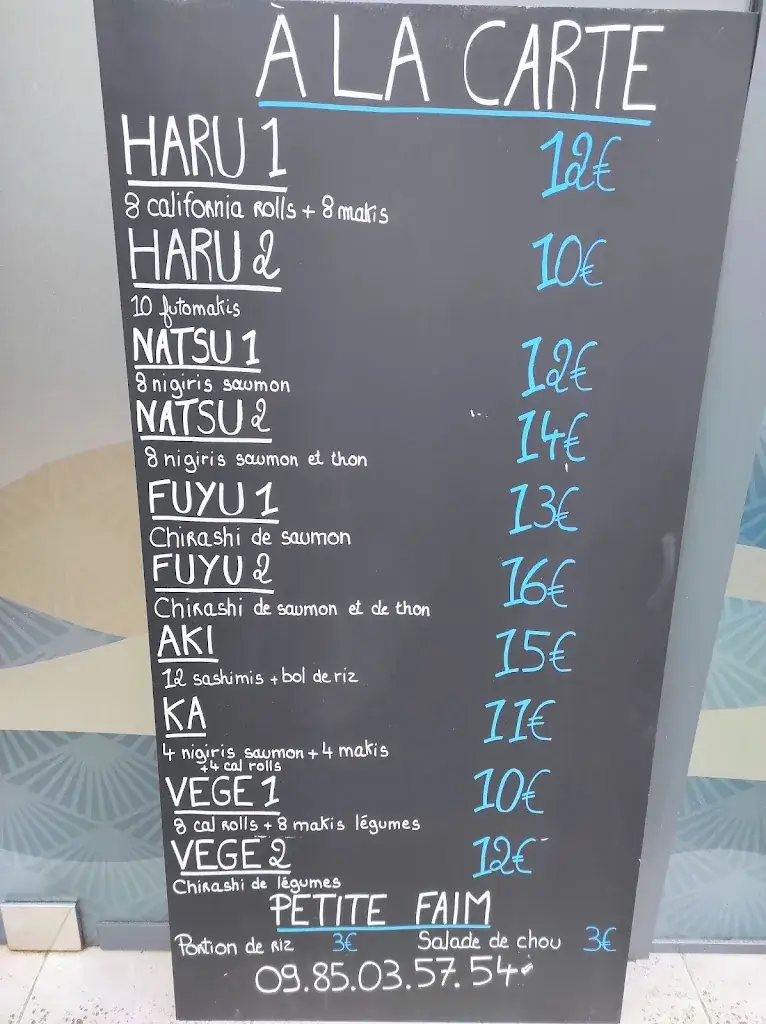 À LA CARTE
HARU 1 12€
8 california rolls + 8 makis
HARU 2 10€
10 futomakis
NATSU 1 12€
8 nigiris saumon
NATSU 2 14€
8 nigiris saumon et thon
FUYU 1 13€
Chirashi de saumon
FUYU 2 16€
Chirashi de saumon et de thon
AKI 15€
12 sashimis + bol de riz
KA 11€
4 nigiris saumon + 4 makis
+4 cal rolls
VEGE 1 10€
8 cal rolls + 8 makis légumes
VEGE 2 12€
Chirashi de légumes
PETITE FAIM
Portion de riz 3€ Salade de chou 3€
09.85.03.57.54